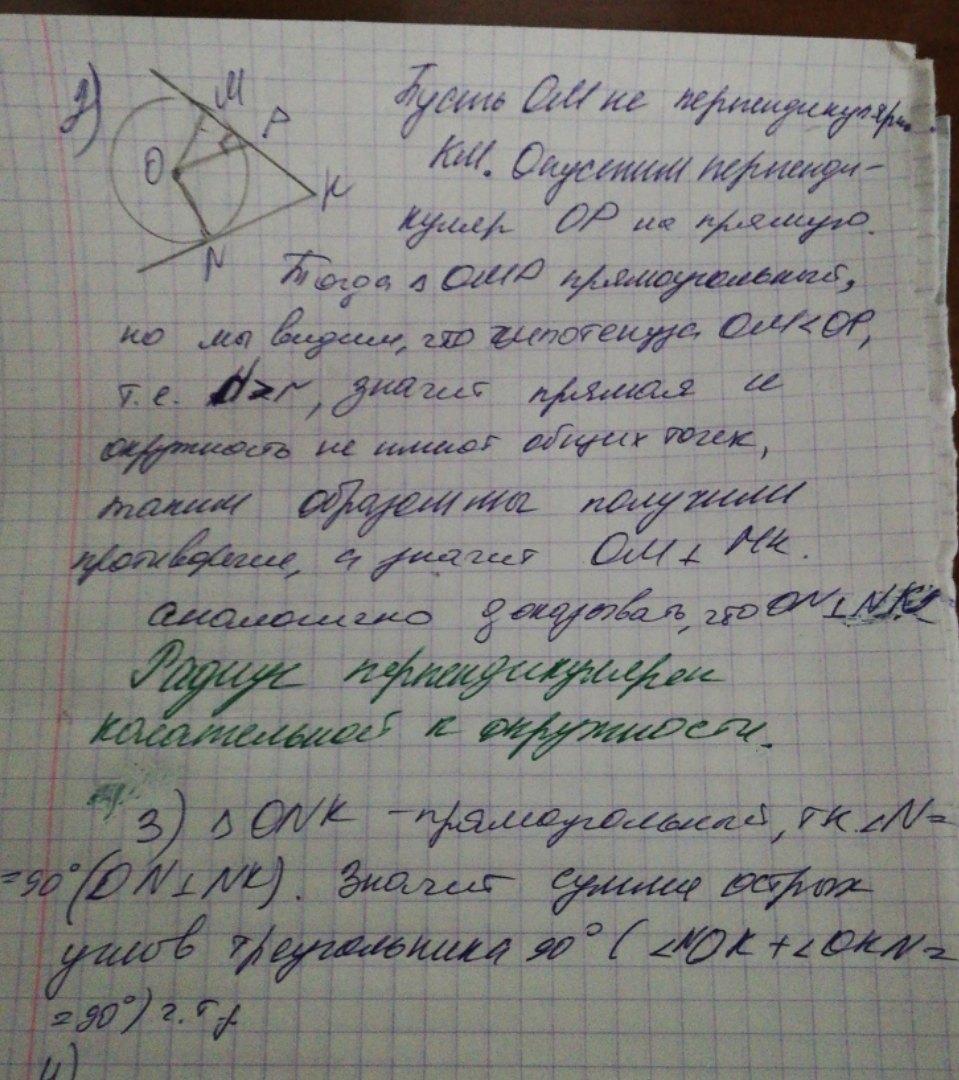 2)
M
P
O
K
N
Пусть OM не перпендикулярно
KM. Опустим перпенди-
куляр OP на прямую.
Тогда △ OMP прямоугольный,
но мы видим, что гипотенуза OM<OP,
т.е. d>r, значит прямая и
окружность не имеют общих точек,
таким образом мы получили
противоречие, а значит OM⊥MK.
Аналогично доказывать, что ON⊥NK
Радиус перпендикулярен
касательной к окружности.
3) △ ONK - прямоугольный, тк. ∠N=
=90°(ON⊥NK). Значит сумма острых
углов треугольника 90° (∠NOK+∠OKN=
=90°) ч.т.д
4)